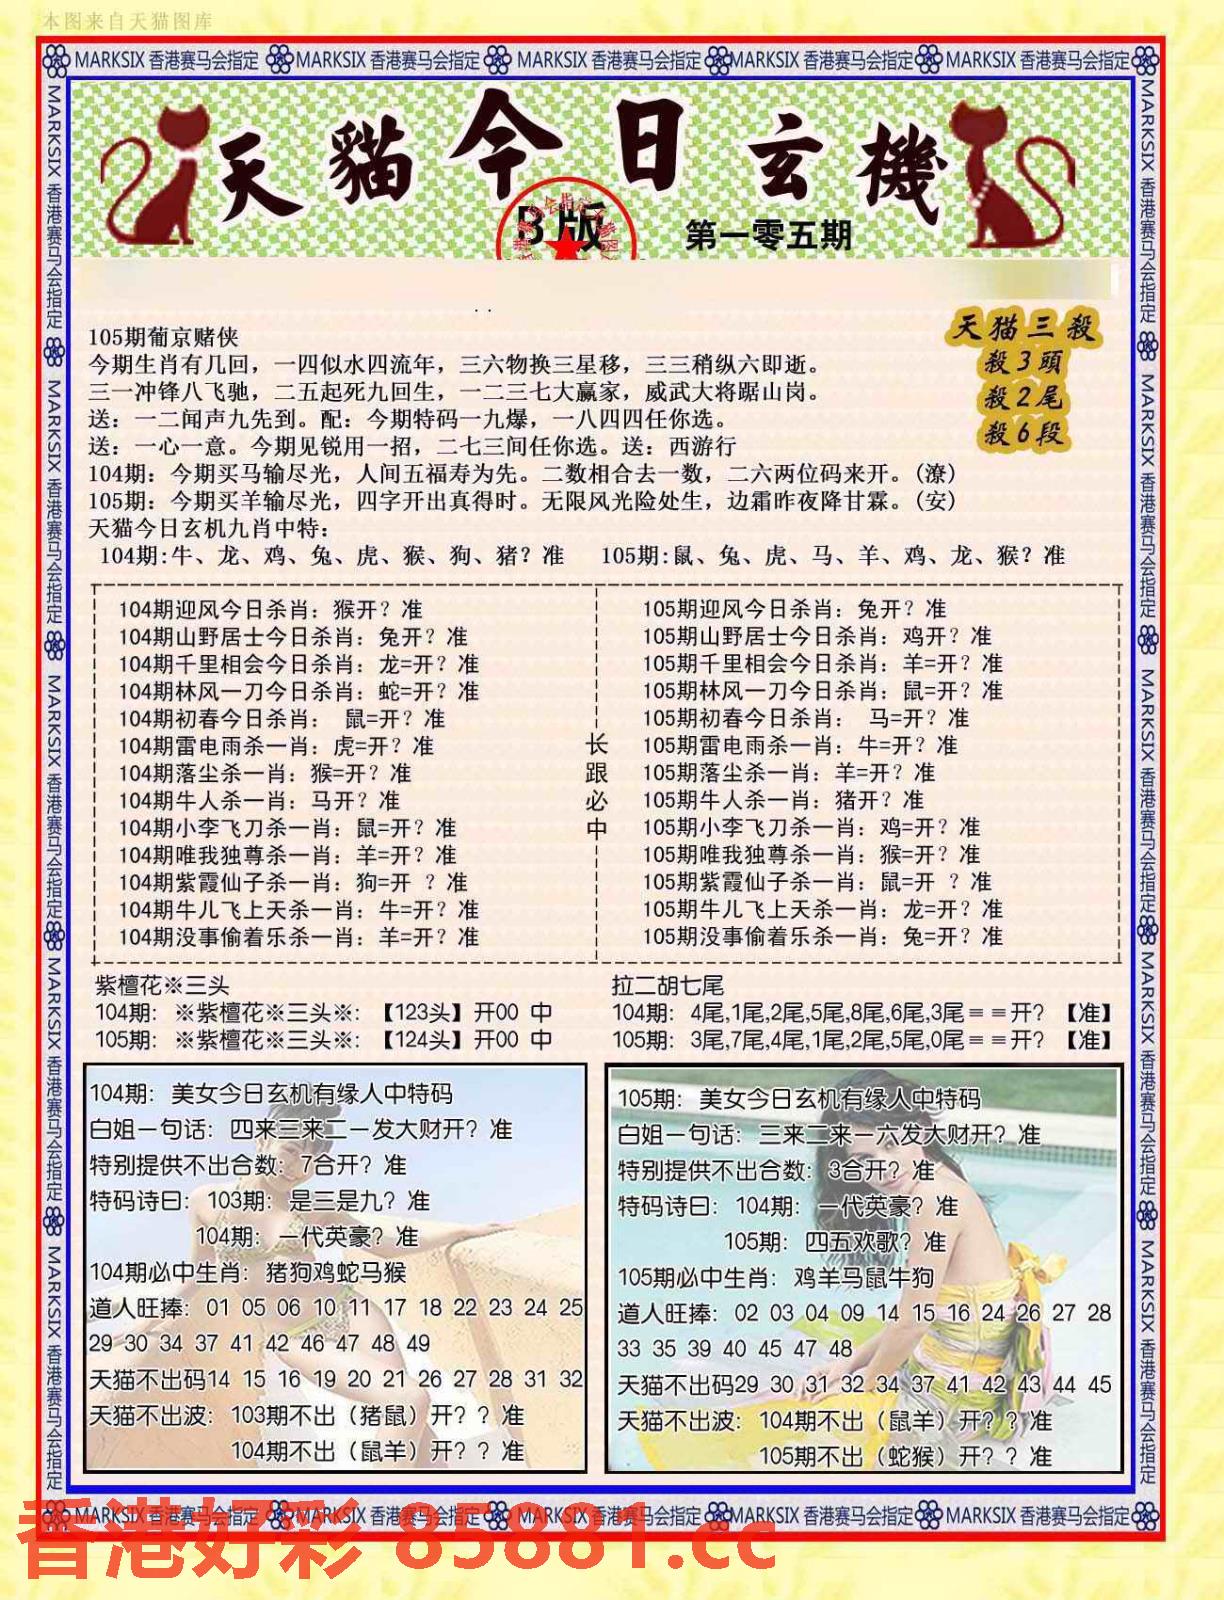 本图来自天猫图库
MARKSIX 香港赛马会指定 MARKSIX 香港赛马会指定 MARKSIX 香港赛马会指定 MARKSIX 香港赛马会指定 MARKSIX 香港赛马会指定
MARKSIX 香港赛马会指定 MARKSIX 香港赛马会指定 MARKSIX 香港赛马会指定 MARKSIX 香港赛马会指定 MARKSIX 香港赛马会指定
天貓今日玄機
B版
第一零五期
天猫三殺
殺3頭
殺2尾
殺6段
105期葡京赌侠
今期生肖有几回，一四似水四流年，三六物换三星移，三三稍纵六即逝。
三一冲锋八飞驰，二五起死九回生，一二三七大赢家，威武大将踞山岗。
送：一二闻声九先到。配：今期特码一九爆，一八四四任你选。
送：一心一意。今期见锐用一招，二七三间任你选。送：西游行
104期：今期买马输尽光，人间五福寿为先。二数相合去一数，二六两位码来开。(潦)
105期：今期买羊输尽光，四字开出真得时。无限风光险处生，边霜昨夜降甘霖。(安)
天猫今日玄机九肖中特：
104期:牛、龙、鸡、兔、虎、猴、狗、猪？准 105期:鼠、兔、虎、马、羊、鸡、龙、猴？准
104期迎风今日杀肖：猴开？准
104期山野居士今日杀肖：兔开？准
104期千里相会今日杀肖：龙=开？准
104期林风一刀今日杀肖：蛇=开？准
104期初春今日杀肖： 鼠=开？准
104期雷电雨杀一肖：虎=开？准
104期落尘杀一肖：猴=开？准
104期牛人杀一肖：马开？准
104期小李飞刀杀一肖：鼠=开？准
104期唯我独尊杀一肖：羊=开？准
104期紫霞仙子杀一肖：狗=开 ？准
104期牛儿飞上天杀一肖：牛=开？准
104期没事偷着乐杀一肖：羊=开？准
长
跟
必
中
105期迎风今日杀肖：兔开？准
105期山野居士今日杀肖：鸡开？准
105期千里相会今日杀肖：羊=开？准
105期林风一刀今日杀肖：鼠=开？准
105期初春今日杀肖： 马=开？准
105期雷电雨杀一肖：牛=开？准
105期落尘杀一肖：羊=开？准
105期牛人杀一肖：猪开？准
105期小李飞刀杀一肖：鸡=开？准
105期唯我独尊杀一肖：猴=开？准
105期紫霞仙子杀一肖：鼠=开 ？准
105期牛儿飞上天杀一肖：龙=开？准
105期没事偷着乐杀一肖：兔=开？准
紫檀花※三头
104期：※紫檀花※三头※：【123头】开00 中
105期：※紫檀花※三头※：【124头】开00 中
拉二胡七尾
104期：4尾,1尾,2尾,5尾,8尾,6尾,3尾＝＝开？【准】
105期：3尾,7尾,4尾,1尾,2尾,5尾,0尾＝＝开？【准】
104期：美女今日玄机有缘人中特码
白姐一句话：四来三来二一发大财开？准
特别提供不出合数：7合开？准
特码诗曰：103期：是三是九？准
104期：一代英豪？准
104期必中生肖：猪狗鸡蛇马猴
道人旺捧：01 05 06 10 11 17 18 22 23 24 25
29 30 34 37 41 42 46 47 48 49
天猫不出码14 15 16 19 20 21 26 27 28 31 32
天猫不出波：103期不出（猪鼠）开？？准
104期不出（鼠羊）开？？准
105期：美女今日玄机有缘人中特码
白姐一句话：三来二来一六发大财开？准
特别提供不出合数：3合开？准
特码诗曰：104期：一代英豪？准
105期：四五欢歌？准
105期必中生肖：鸡羊马鼠牛狗
道人旺捧：02 03 04 09 14 15 16 24 26 27 28
33 35 39 40 45 47 48
天猫不出码29 30 31 32 34 37 41 42 43 44 45
天猫不出波：104期不出（鼠羊）开？？准
105期不出（蛇猴）开？？准
MARKSIX 香港赛马会指定 MARKSIX 香港赛马会指定 MARKSIX 香港赛马会指定 MARKSIX 香港赛马会指定 MARKSIX 香港赛马会指定
MARKSIX 香港赛马会指定 MARKSIX 香港赛马会指定 MARKSIX 香港赛马会指定 MARKSIX 香港赛马会指定 MARKSIX 香港赛马会指定
香港好彩 85881.cc